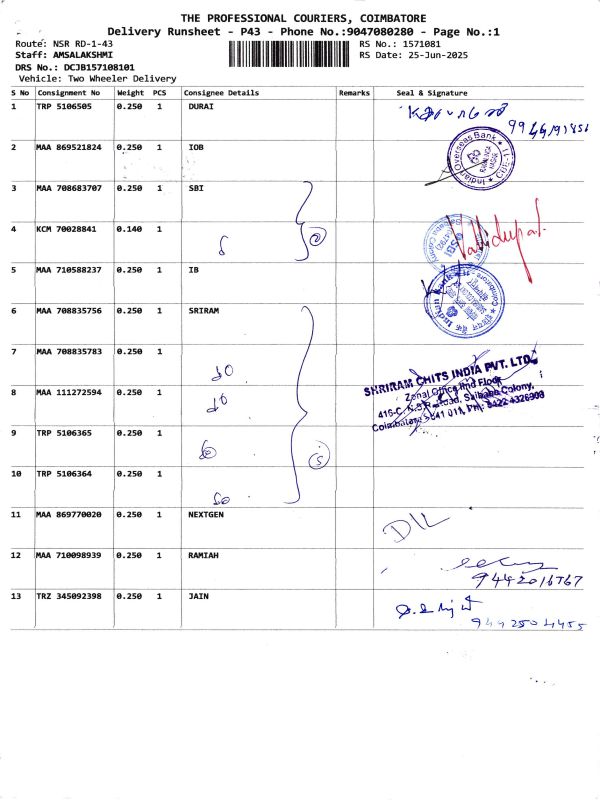 THE PROFESSIONAL COURIERS, COIMBATORE
Delivery Runsheet - P43 - Phone No.:9047080280 - Page No.:1
Route: NSR RD-1-43
RS No.: 1571081
Staff: AMSALAKSHMI
RS Date: 25-Jun-2025
DRS No.: DCJB157108101
Vehicle: Two Wheeler Delivery
S No Consignment No Weight PCS Consignee Details Remarks Seal & Signature
1 TRP 5106505 0.250 1 DURAI
2 MAA 869521824 0.250 1 IOB
Indian Overseas Bank
3 MAA 708683707 0.250 1 SBI
2
4 KCM 70028841 0.140 1
5 MAA 710588237 0.250 1 IB
6 MAA 708835756 0.250 1 SRIRAM
7 MAA 708835783 0.250 1
SHRIRAM CHITS INDIA PVT. LTD.
Zonal Office IInd Floor
8 MAA 111272594 0.250 1
Saibaba Colony,
9 TRP 5106365 0.250 1
5
10 TRP 5106364 0.250 1
11 MAA 869770020 0.250 1 NEXTGEN
D/L
12 MAA 710098939 0.250 1 RAMIAH
9442016767
13 TRZ 345092398 0.250 1 JAIN
9442504455